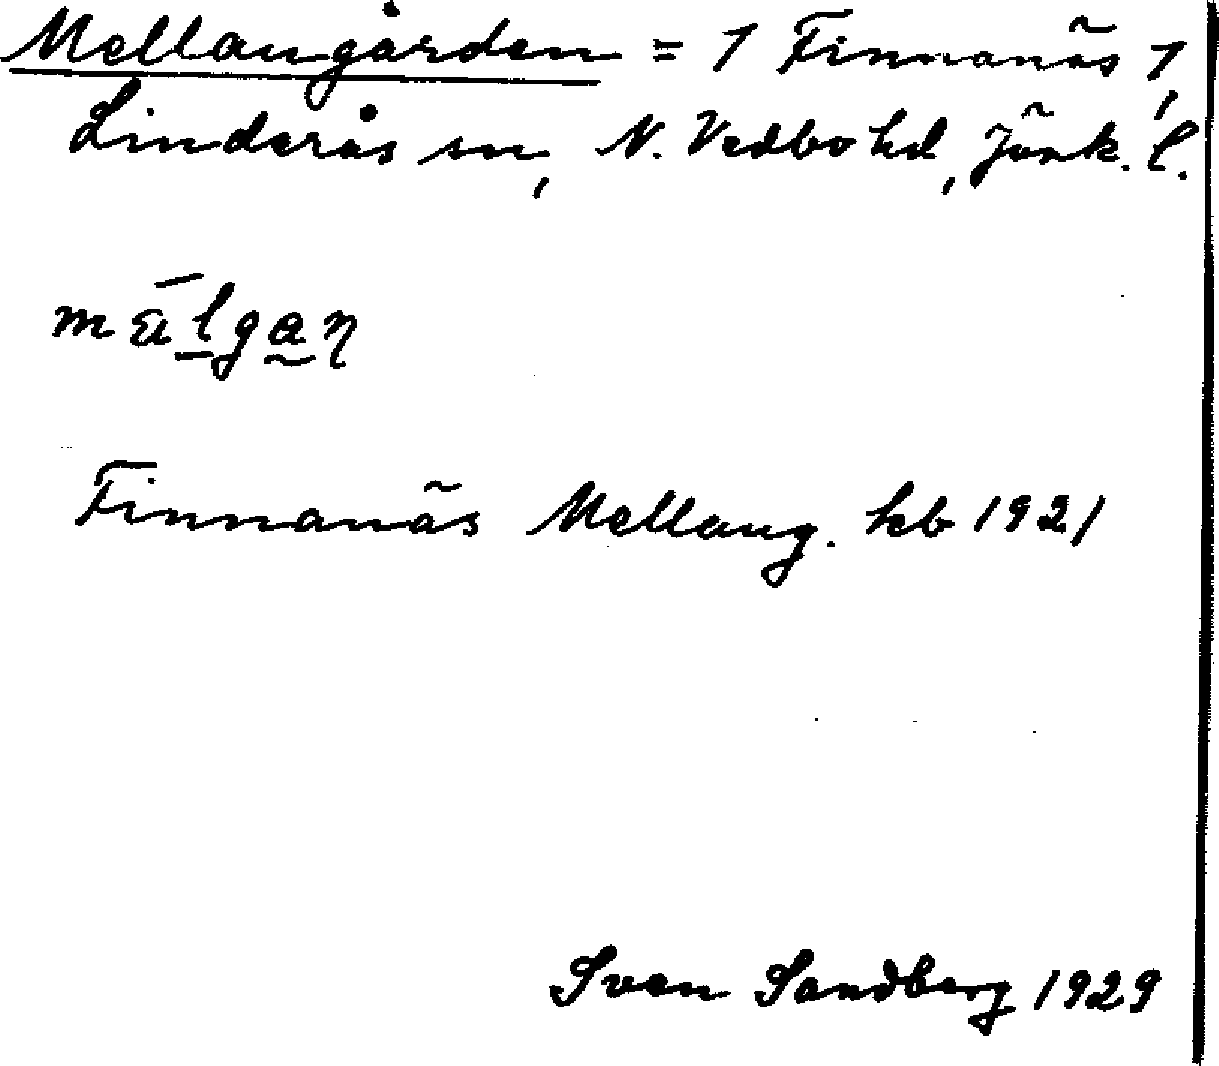 Mellangården = 1 Finnanäs 1,
Linderås sn, N. Vedbo hd, Jönk. l.
mälgan
Finnanäs Mellang. kb 1921
Sven Sandberg 1929